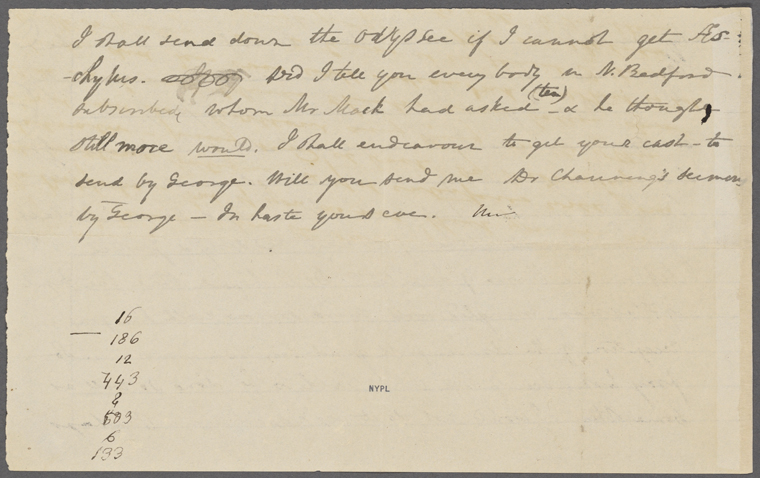 I shall send down the Odyssee if I cannot get Æs-
-chylus. Did I tell you every body in N. Bedford
subscribed, whom Mr Mack had asked (ten) - & he thought
still more would. I shall endeavour to get your cast - to
send by George. Will you send me Dr Channing's sermon
by George - In haste yours ever.
16
186
12
443
603
6
133
NYPL